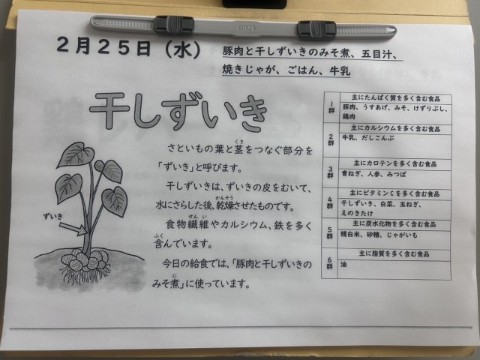 2月25日(水)
豚肉と干しずいきのみそ煮、五目汁、
焼きじゃが、ごはん、牛乳
干しずいき
さといもの葉と茎をつなぐ部分を
「ずいき」と呼びます。
干しずいきは、ずいきの皮をむいて、
水にさらした後、乾燥させたものです。
食物繊維やカルシウム、鉄を多く
含んでいます。
今日の給食では、「豚肉と干しずいきの
みそ煮」に使っています。
ずいき
1群
主にたんぱく質を多く含む食品
豚肉、うすあげ、みそ、けずりぶし、
鶏肉
2群
主にカルシウムを多く含む食品
牛乳、だしこんぶ
3群
主にカロテンを多く含む食品
青ねぎ、人参、みつば
4群
主にビタミンCを多く含む食品
干しずいき、白菜、玉ねぎ、
えのきたけ
5群
主に炭水化物を多く含む食品
精白米、砂糖、じゃがいも
6群
主に脂質を多く含む食品
油